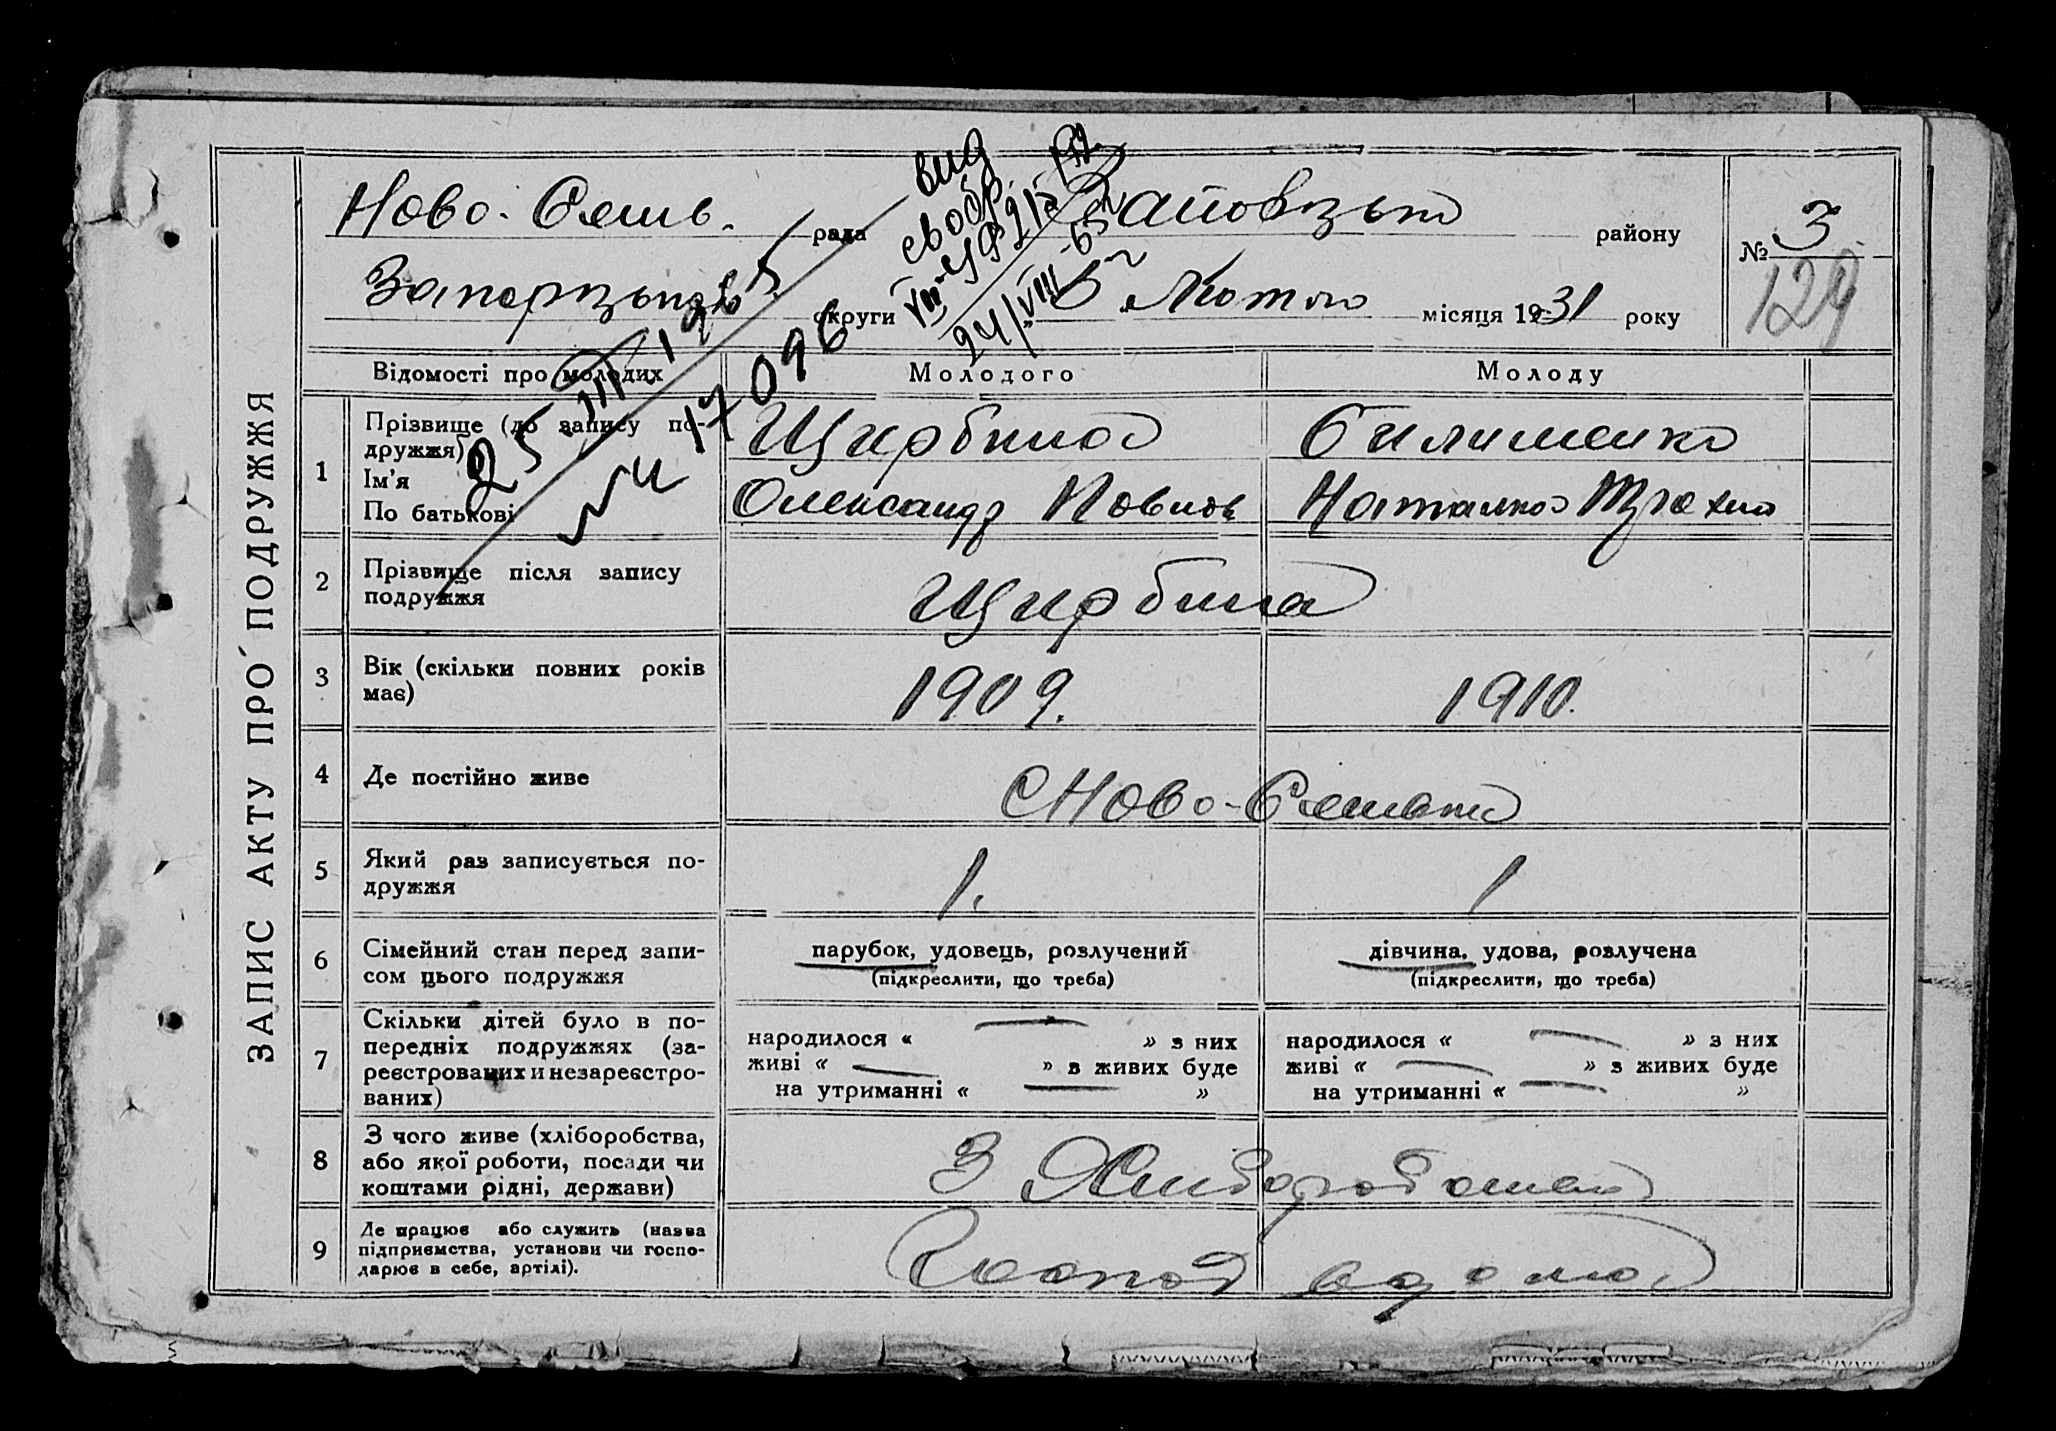 ЗАПИС АКТУ ПРО ПОДРУЖЖЯ
Ново-Селив. рада району
№ 3
129
округи 5 Лютого місяця 1931 року
вид
свобр
25 III 1965
17096
24/VIII-65
Відомості про молодих Молодого Молоду
1 Прізвище (до запису по-
дружжя)
Ім'я
По батькові
Щирбина
Олександр Павлов
Билименко
Наталка Трохим
2 Прізвище після запису
подружжя
Щирбина
3 Вік (скільки повних років
має)
1909. 1910.
4 Де постійно живе
С Ново-Селивки
5 Який раз записується по-
дружжя
1. 1
6 Сімейний стан перед запи-
сом цього подружжя
парубок, удовець, розлучений
(підкреслити, що треба)
дівчина, удова, розлучена
(підкреслити, що треба)
7 Скільки дітей було в по-
передніх подружжях (за-
реєстрованих и незареєстро-
ваних)
народилося « — » з них
живі « — » з живих буде
на утриманні « — »
народилося « — » з них
живі « — » з живих буде
на утриманні « — »
8 З чого живе (хліборобства,
або якої роботи, посади чи
коштами рідні, держави)
З Хлиборобства
9 Де працює або служить (назва
підприємства, установи чи госпо-
дарює в себе, артілі).